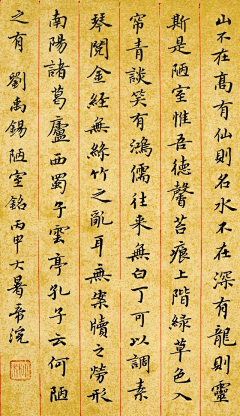 山不在高有仙則名水不在深有龍則靈
斯是陋室惟吾德馨苔痕上階綠草色入
帘青談笑有鴻儒往來無白丁可以調素
琴閱金經無絲竹之亂耳無案牘之勞形
南陽諸葛廬西蜀子雲亭孔子云何陋
之有 劉禹錫陋室銘 丙申大暑